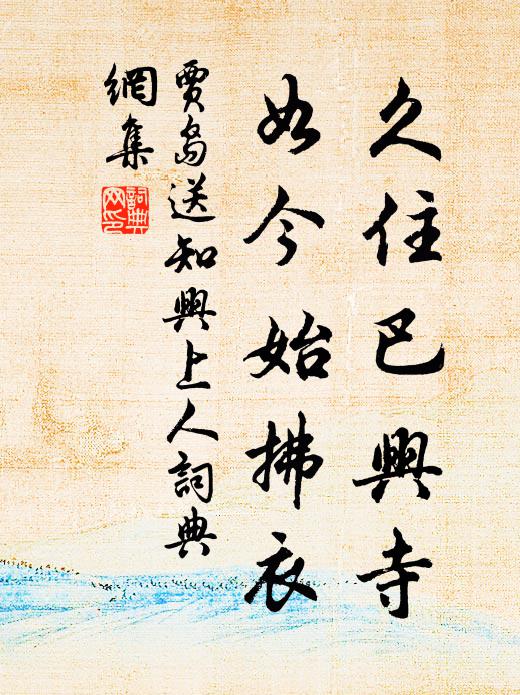 久住巴興寺
如今始拂衣
賈島送知興上人詞典
網集
詞典
网印